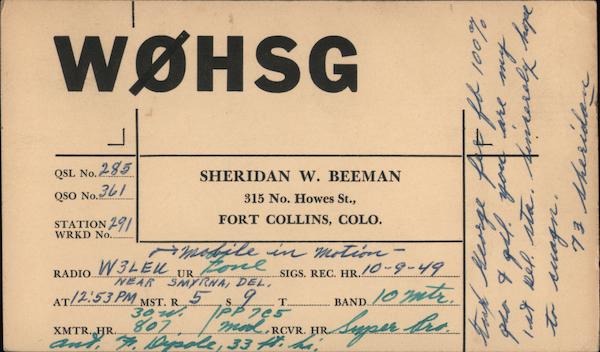 WØHSG
QSL No. 285
QSO No. 361
STATION
WRKD No. 291
SHERIDAN W. BEEMAN
315 No. Howes St.,
FORT COLLINS, COLO.
mobile in motion
RADIO W3LEU UR fone SIGS. REC. HR. 10-9-49
NEAR SMYRNA, DEL.
AT 12:53 PM MST. R 5 S 9 T BAND 10 mtr.
30 w. PP 705
XMTR. HR. 807 mod. RCVR. HR Super Pro.
ant. Dipole, 33 ft. hi.
George for fb 100%
qso & qsl. you are my
1st Del. sta. Sincerely hope
to cuagn.
73 Sheridan